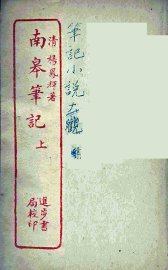 筆記小說大觀
清楊鳳輝著
南皋筆記 上
進步書
局校印